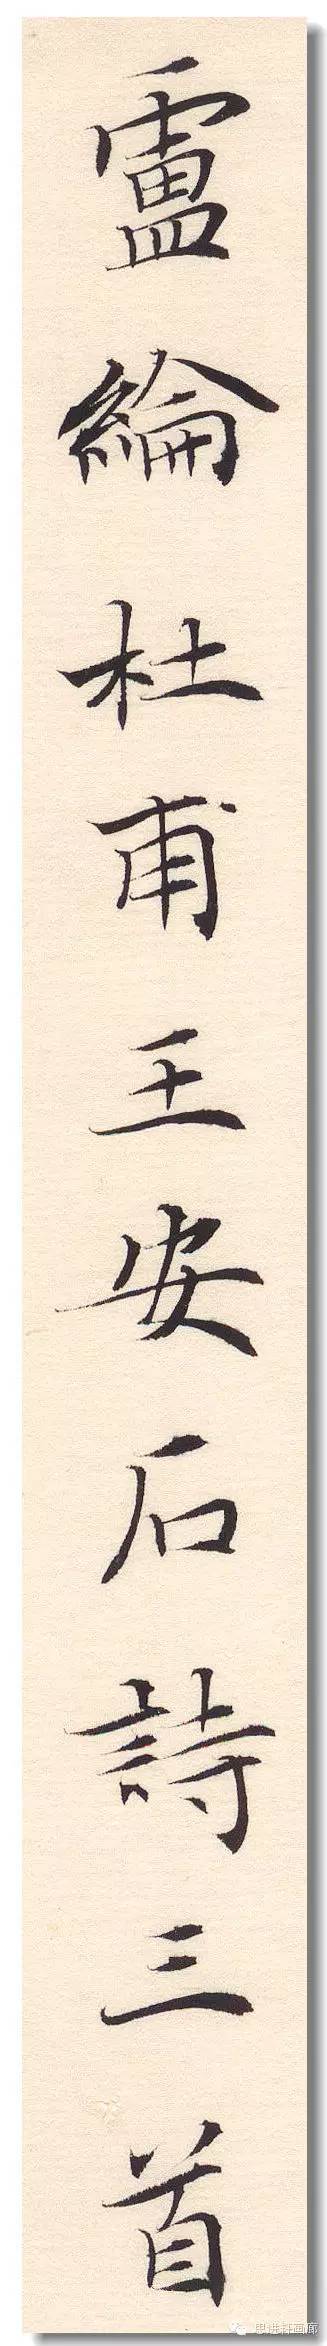 盧綸杜甫王安石詩三首
思进轩画廊